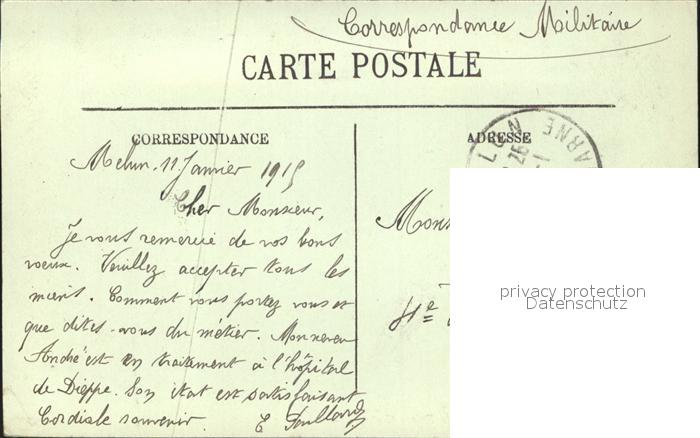 Correspondance Militaire
CARTE POSTALE
CORRESPONDANCE
ADRESSE
Melun. 11 Janvier 1915
Cher Monsieur,
Je vous remercie de vos bons
voeux. Veuillez accepter tous les
miens. Comment vous portez vous et
que dites-vous du métier. Mon neveu
André est en traitement à l'hôpital
de Dieppe. Son état est satisfaisant
Cordiale souvenir. E
privacy protection
Datenschutz